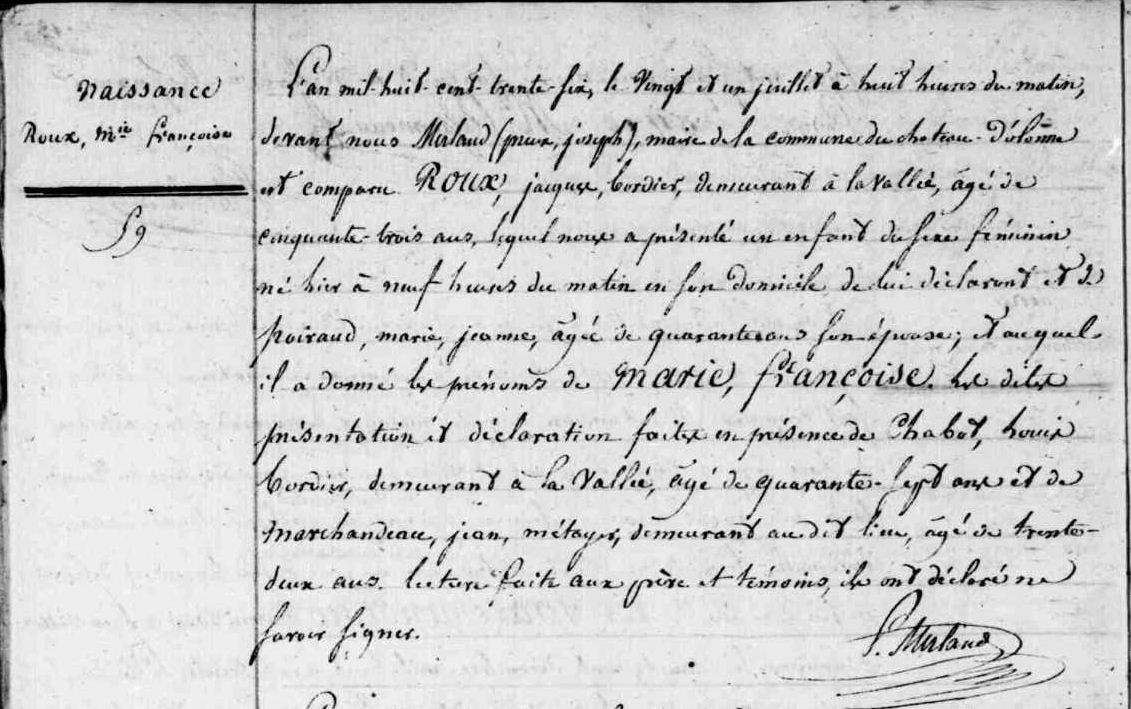 Naissance
Roux, M.ie françoise
59
L'an mil-huit-cent-trente-six, le vingt et un juillet à huit heures du matin,
devant nous Merland (pierre, joseph), maire de la commune du chateau-d'olonne
est comparu ROUX, jacques, bordier, demeurant à la vallée, âgé de
cinquante-trois ans, lequel nous a présenté un enfant du sexe féminin
né hier à neuf heures du matin en son domicile de lui déclarant et de
poiraud, marie, jeanne, âgée de quarante ans son épouse; et auquel
il a donné les prénoms de marie, françoise. Les dites
présentation et déclaration faites en présence de Chabot, Louis
bordier, demeurant à la vallée, âgé de quarante-sept ans et de
marchandeau, jean, métayer, demeurant au dit lieu, âgé de trente-
deux ans. lecture faite aux père et témoins, ils ont déclaré ne
savoir signer.
Merland